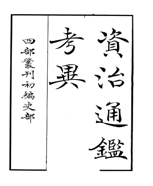 資治通鑑
考異
四部叢刊初編史部